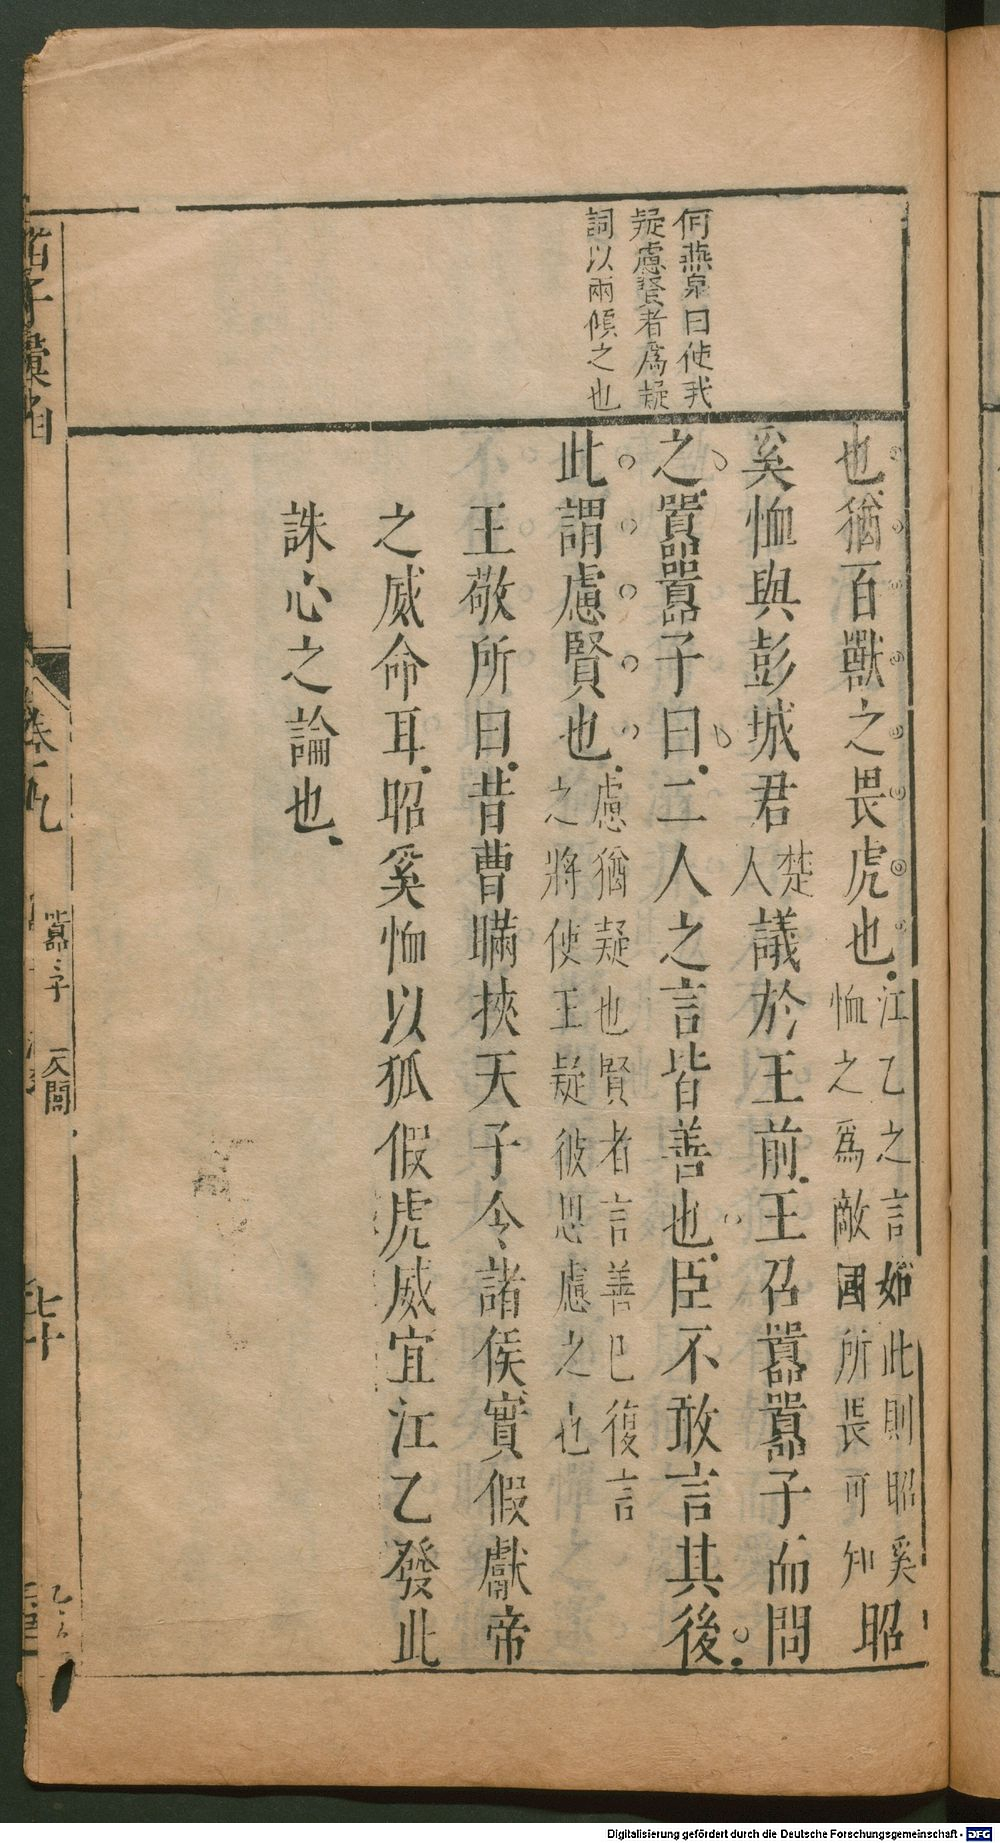 何燕泉曰使我
疑慮賢者爲疑
詞以兩傾之也
也猶百獸之畏虎也江乙之言如此則昭奚恤之爲敵國所畏可知昭
奚恤與彭城君楚人議於王前王召囂囂子而問
之囂囂子曰二人之言皆善也臣不敢言其後
此謂慮賢也慮猶疑也賢者言善已復言之將使王疑彼思慮之也
王敬所曰昔曹瞞挾天子令諸侯實假獻帝
之威命耳昭奚恤以狐假虎威宜江乙發此
誅心之論也
諸子彙函
卷十九
囂囂子 天閽
七十
Digitalisierung gefördert durch die Deutsche Forschungsgemeinschaft - DFG